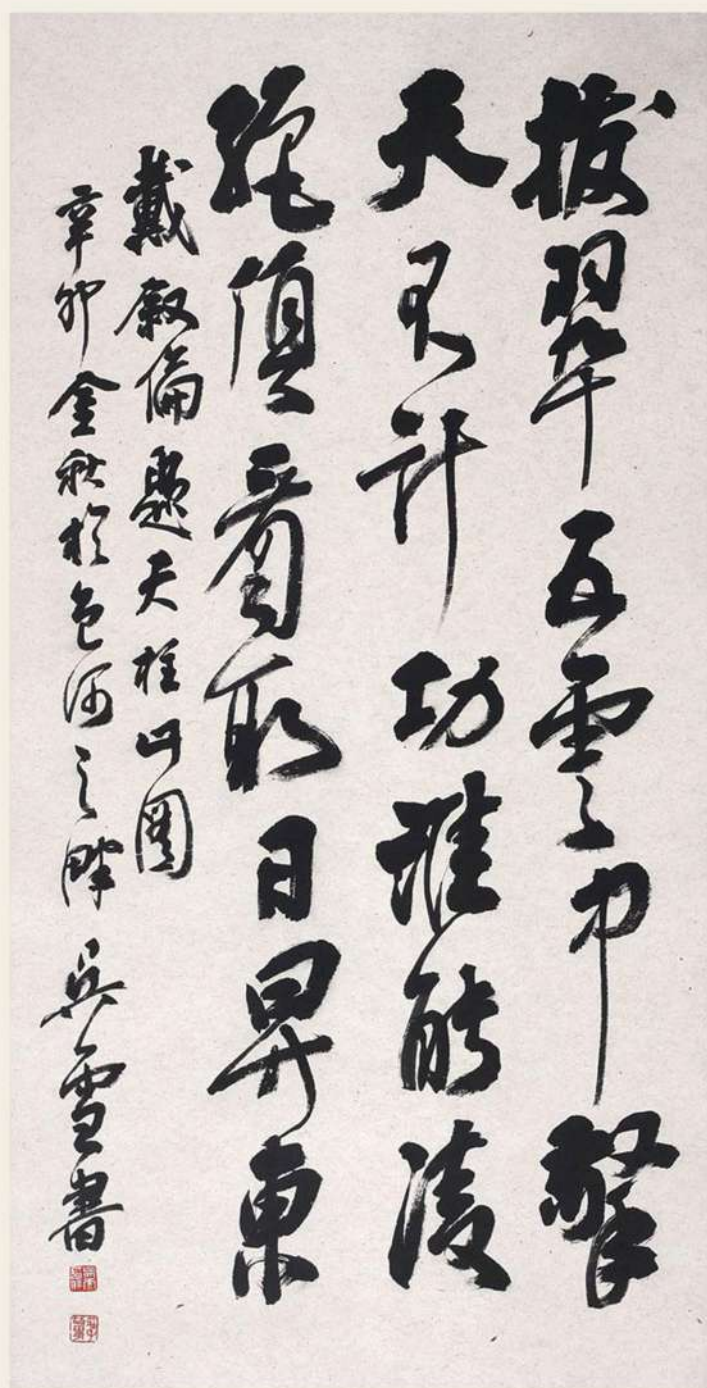 拔翠五雲中擎
天不計功誰能凌
絕頂看取日昇東
戴叙倫題天柱山圖
辛卯金秋於包河之畔 吳雪書